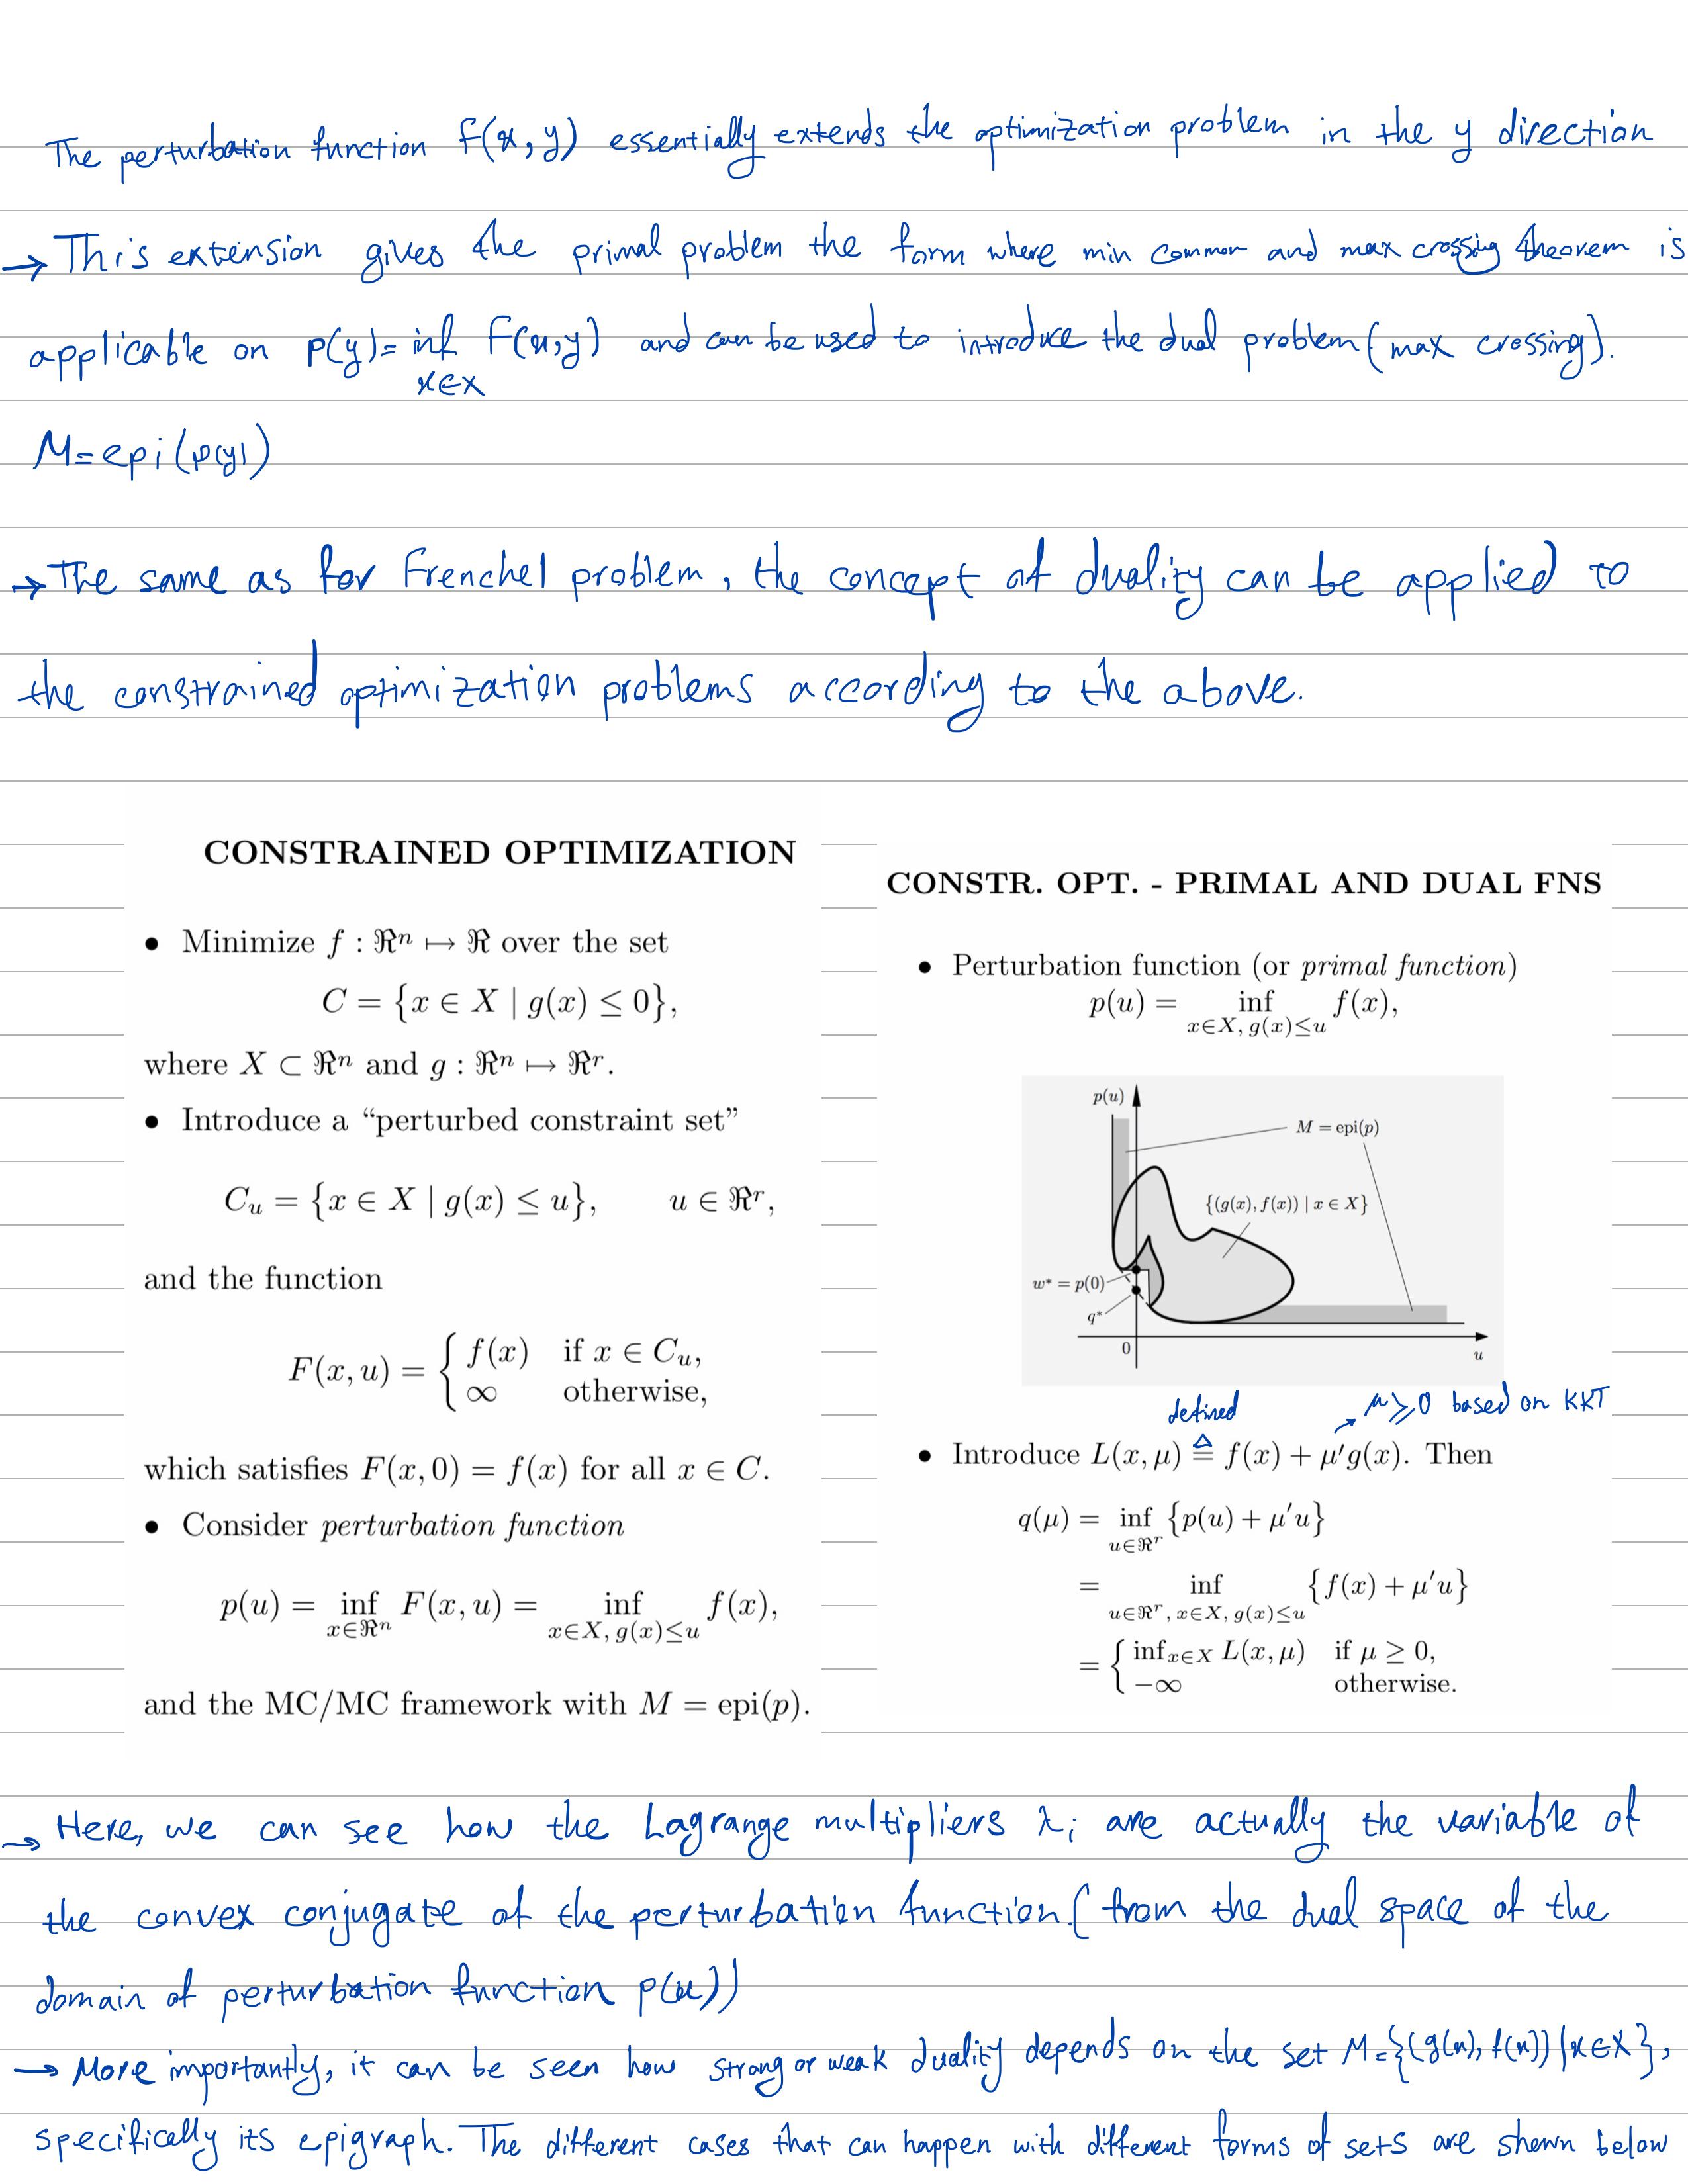 The perturbation function F(x, y) essentially extends the optimization problem in the y direction
→ This extension gives the primal problem the form where min common and max crossing theorem is
applicable on p(y) = inf F(x,y) and can be used to introduce the dual problem (max crossing).
x∈X
M = epi(p(y))
→ The same as for Frenchel problem, the concept of duality can be applied to
the constrained optimization problems according to the above.
CONSTRAINED OPTIMIZATION
• Minimize f : ℜⁿ ↦ ℜ over the set
C = {x ∈ X | g(x) ≤ 0},
where X ⊂ ℜⁿ and g : ℜⁿ ↦ ℜʳ.
• Introduce a “perturbed constraint set”
C_u = {x ∈ X | g(x) ≤ u}, u ∈ ℜʳ,
and the function
F(x, u) = { f(x) if x ∈ C_u,
∞ otherwise,
which satisfies F(x, 0) = f(x) for all x ∈ C.
• Consider perturbation function
p(u) = inf F(x, u) = inf f(x),
x∈ℜⁿ x∈X, g(x)≤u
and the MC/MC framework with M = epi(p).
CONSTR. OPT. - PRIMAL AND DUAL FNS
• Perturbation function (or primal function)
p(u) = inf f(x),
x∈X, g(x)≤u
p(u)
M = epi(p)
{(g(x), f(x)) | x ∈ X}
w* = p(0)
q*
0
u
defined
→ μ ≥ 0 based on KKT
• Introduce L(x, μ) ≜ f(x) + μ′g(x). Then
q(μ) = inf {p(u) + μ′u}
u∈ℜʳ
= inf {f(x) + μ′u}
u∈ℜʳ, x∈X, g(x)≤u
= { inf_{x∈X} L(x, μ) if μ ≥ 0,
−∞ otherwise.
→ Here, we can see how the Lagrange multipliers λᵢ are actually the variable of
the convex conjugate of the perturbation function (from the dual space of the
domain of perturbation function p(u))
→ More importantly, it can be seen how strong or weak duality depends on the set M = {(g(x), f(x)) | x∈X},
specifically its epigraph. The different cases that can happen with different forms of sets are shown below